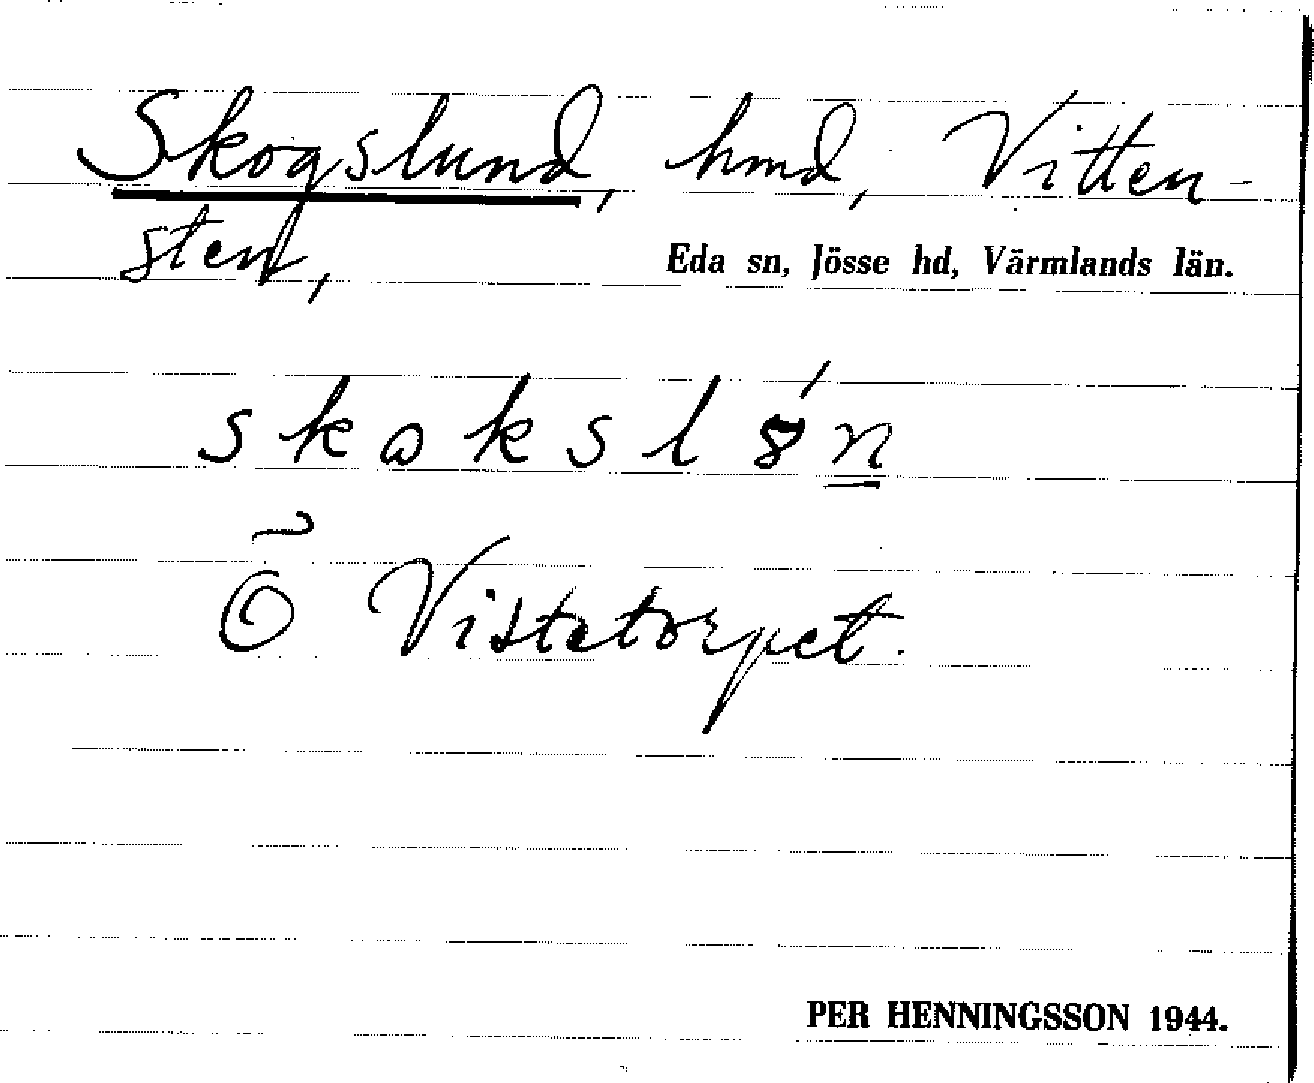 Skogslund, hmd, Vitten-
sten,
Eda sn, Jösse hd, Värmlands län.
skɷkslǿn
Ö Vistetorpet.
PER HENNINGSSON 1944.